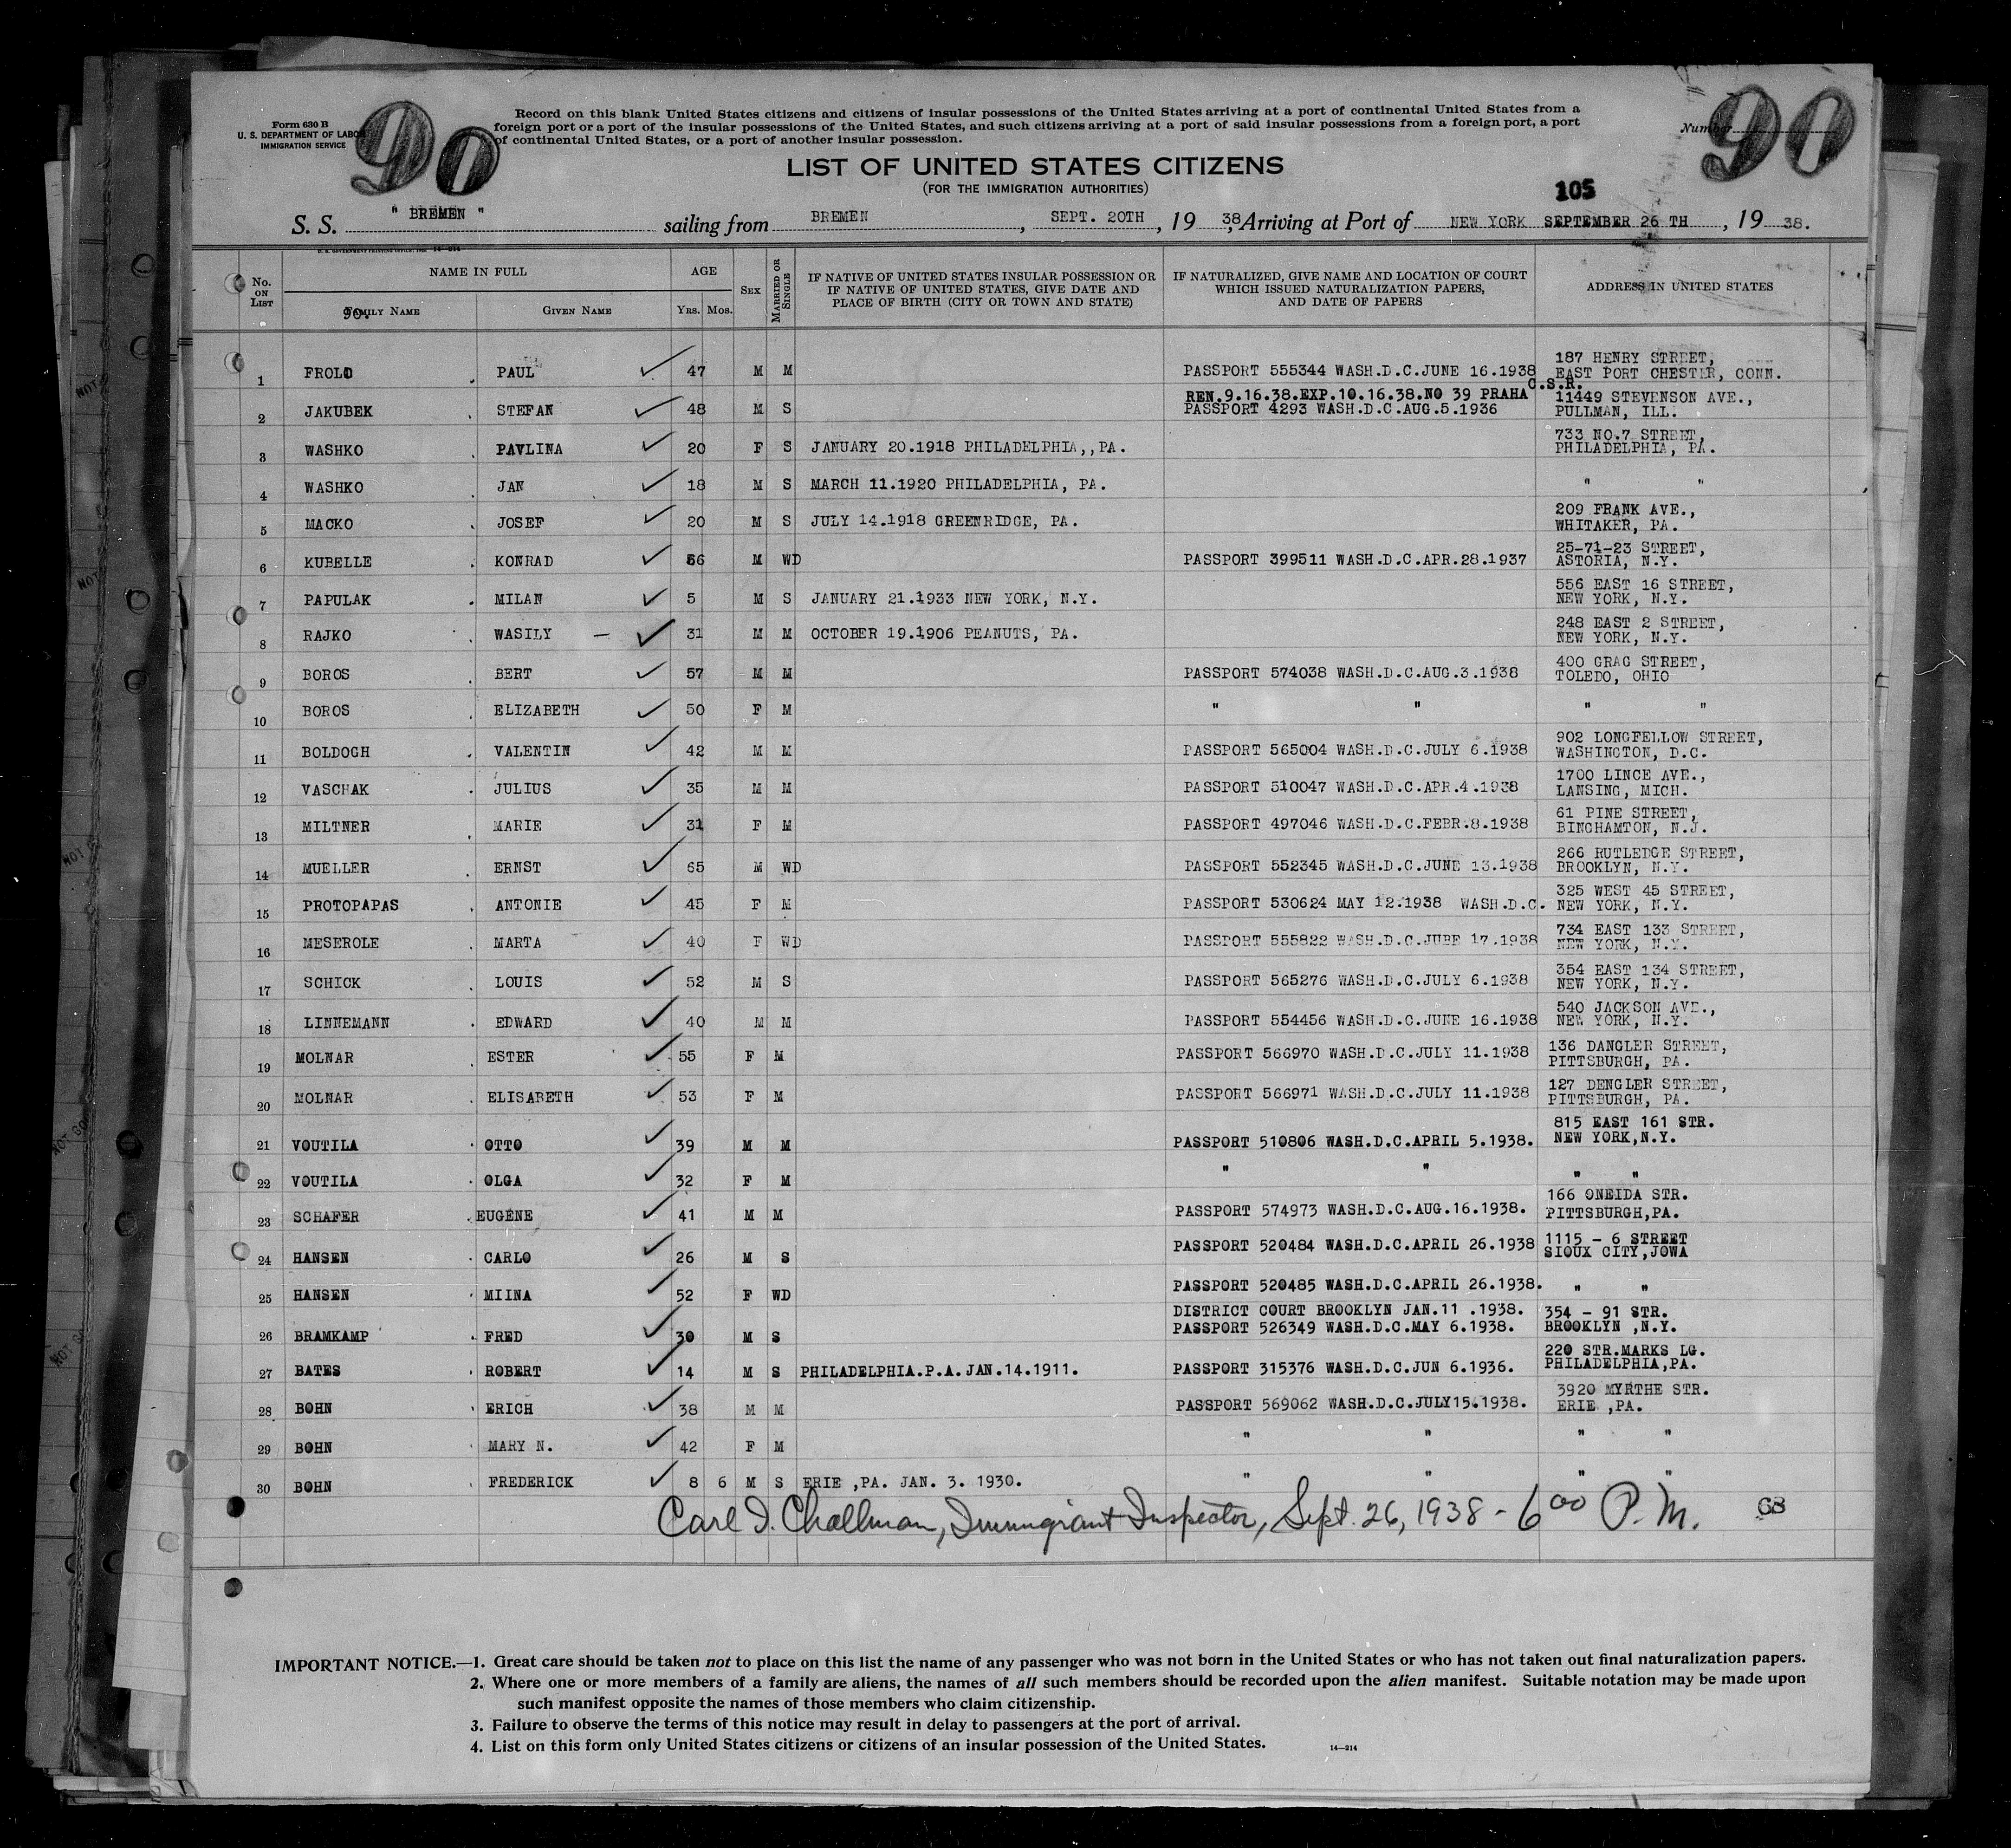 Form 630 B
U. S. DEPARTMENT OF LABOR
IMMIGRATION SERVICE
90
Record on this blank United States citizens and citizens of insular possessions of the United States arriving at a port of continental United States from a
foreign port or a port of the insular possessions of the United States, and such citizens arriving at a port of said insular possessions from a foreign port, a port
of continental United States, or a port of another insular possession.
Number 90
LIST OF UNITED STATES CITIZENS
(FOR THE IMMIGRATION AUTHORITIES)
105
S. S. " BREMEN " sailing from BREMEN, SEPT. 20TH, 19 38, Arriving at Port of NEW YORK SEPTEMBER 26 TH, 19 38.
No. ON LIST NAME IN FULL FAMILY NAME GIVEN NAME AGE YRS. MOS. SEX MARRIED OR SINGLE IF NATIVE OF UNITED STATES INSULAR POSSESSION OR IF NATIVE OF UNITED STATES, GIVE DATE AND PLACE OF BIRTH (CITY OR TOWN AND STATE) IF NATURALIZED, GIVE NAME AND LOCATION OF COURT WHICH ISSUED NATURALIZATION PAPERS, AND DATE OF PAPERS ADDRESS IN UNITED STATES
90.
1 FROLO PAUL 47 M M PASSPORT 555344 WASH.D.C.JUNE 16.1938 187 HENRY STREET, EAST PORT CHESTER, CONN.
2 JAKUBEK STEFAN 48 M S REN.9.16.38.EXP.10.16.38.NO 39 PRAHA C.S.R. PASSPORT 4293 WASH.D.C.AUG.5.1936 11449 STEVENSON AVE., PULLMAN, ILL.
3 WASHKO PAVLINA 20 F S JANUARY 20.1918 PHILADELPHIA,,PA. 733 NO.7 STREET, PHILADELPHIA, PA.
4 WASHKO JAN 18 M S MARCH 11.1920 PHILADELPHIA, PA. " "
5 MACKO JOSEF 20 M S JULY 14.1918 GREENRIDGE, PA. 209 FRANK AVE., WHITAKER, PA.
6 KUBELLE KONRAD 56 M WD PASSPORT 399511 WASH.D.C.APR.28.1937 25-71-23 STREET, ASTORIA, N.Y.
7 PAPULAK MILAN 5 M S JANUARY 21.1933 NEW YORK, N.Y. 556 EAST 16 STREET, NEW YORK, N.Y.
8 RAJKO WASILY — 31 M M OCTOBER 19.1906 PEANUTS, PA. 248 EAST 2 STREET, NEW YORK, N.Y.
9 BOROS BERT 57 M M PASSPORT 574038 WASH.D.C.AUG.3.1938 400 GRAG STREET, TOLEDO, OHIO
10 BOROS ELIZABETH 50 F M " " " "
11 BOLDOGH VALENTIN 42 M M PASSPORT 565004 WASH.D.C.JULY 6.1938 902 LONGFELLOW STREET, WASHINGTON, D.C.
12 VASCHAK JULIUS 35 M M PASSPORT 510047 WASH.D.C.APR.4.1938 1700 LINCE AVE., LANSING, MICH.
13 MILTNER MARIE 31 F M PASSPORT 497046 WASH.D.C.FEBR.8.1938 61 PINE STREET, BINGHAMTON, N.J.
14 MUELLER ERNST 65 M WD PASSPORT 552345 WASH.D.C.JUNE 13.1938 266 RUTLEDGE STREET, BROOKLYN, N.Y.
15 PROTOPAPAS ANTONIE 45 F M PASSPORT 530624 MAY 12.1938 WASH.D.C. 325 WEST 45 STREET, NEW YORK, N.Y.
16 MESEROLE MARTA 40 F WD PASSPORT 555822 WASH.D.C.JUBE 17.1938 734 EAST 133 STREET, NEW YORK, N.Y.
17 SCHICK LOUIS 52 M S PASSPORT 565276 WASH.D.C.JULY 6.1938 354 EAST 134 STREET, NEW YORK, N.Y.
18 LINNEMANN EDWARD 40 M M PASSPORT 554456 WASH.D.C.JUNE 16.1938 540 JACKSON AVE., NEW YORK, N.Y.
19 MOLNAR ESTER 55 F M PASSPORT 566970 WASH.D.C.JULY 11.1938 136 DANGLER STREET, PITTSBURGH, PA.
20 MOLNAR ELISABETH 53 F M PASSPORT 566971 WASH.D.C.JULY 11.1938 127 DENGLER STREET, PITTSBURGH, PA.
21 VOUTILA OTTO 39 M M PASSPORT 510806 WASH.D.C.APRIL 5.1938. 815 EAST 161 STR. NEW YORK,N.Y.
22 VOUTILA OLGA 32 F M " " " "
23 SCHAFER EUGENE 41 M M PASSPORT 574973 WASH.D.C.AUG.16.1938. 166 ONEIDA STR. PITTSBURGH,PA.
24 HANSEN CARLO 26 M S PASSPORT 520484 WASH.D.C.APRIL 26.1938 1115 - 6 STREET SIOUX CITY,JOWA
25 HANSEN MIINA 52 F WD PASSPORT 520485 WASH.D.C.APRIL 26.1938. " "
26 BRAMKAMP FRED 30 M S DISTRICT COURT BROOKLYN JAN.11 .1938. PASSPORT 526349 WASH.D.C.MAY 6.1938. 354 - 91 STR. BROOKLYN ,N.Y.
27 BATES ROBERT 14 M S PHILADELPHIA.P.A.JAN.14.1911. PASSPORT 315376 WASH.D.C.JUN 6.1936. 220 STR.MARKS LG. PHILADELPHIA,PA.
28 BOHN ERICH 38 M M PASSPORT 569062 WASH.D.C.JULY15.1938. 3920 MYRTHE STR. ERIE ,PA.
29 BOHN MARY N. 42 F M " " " "
30 BOHN FREDERICK 8 6 M S ERIE ,PA. JAN. 3. 1930. " " " "
Carl I. Challman, Immigrant Inspector, Sept. 26, 1938 - 6 00 P.M. CB
IMPORTANT NOTICE.—1. Great care should be taken not to place on this list the name of any passenger who was not born in the United States or who has not taken out final naturalization papers.
2. Where one or more members of a family are aliens, the names of all such members should be recorded upon the alien manifest. Suitable notation may be made upon
such manifest opposite the names of those members who claim citizenship.
3. Failure to observe the terms of this notice may result in delay to passengers at the port of arrival.
4. List on this form only United States citizens or citizens of an insular possession of the United States.
14—214